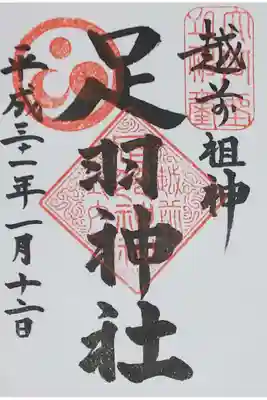 越前祖神
足羽神社
平成三十一年一月十二日